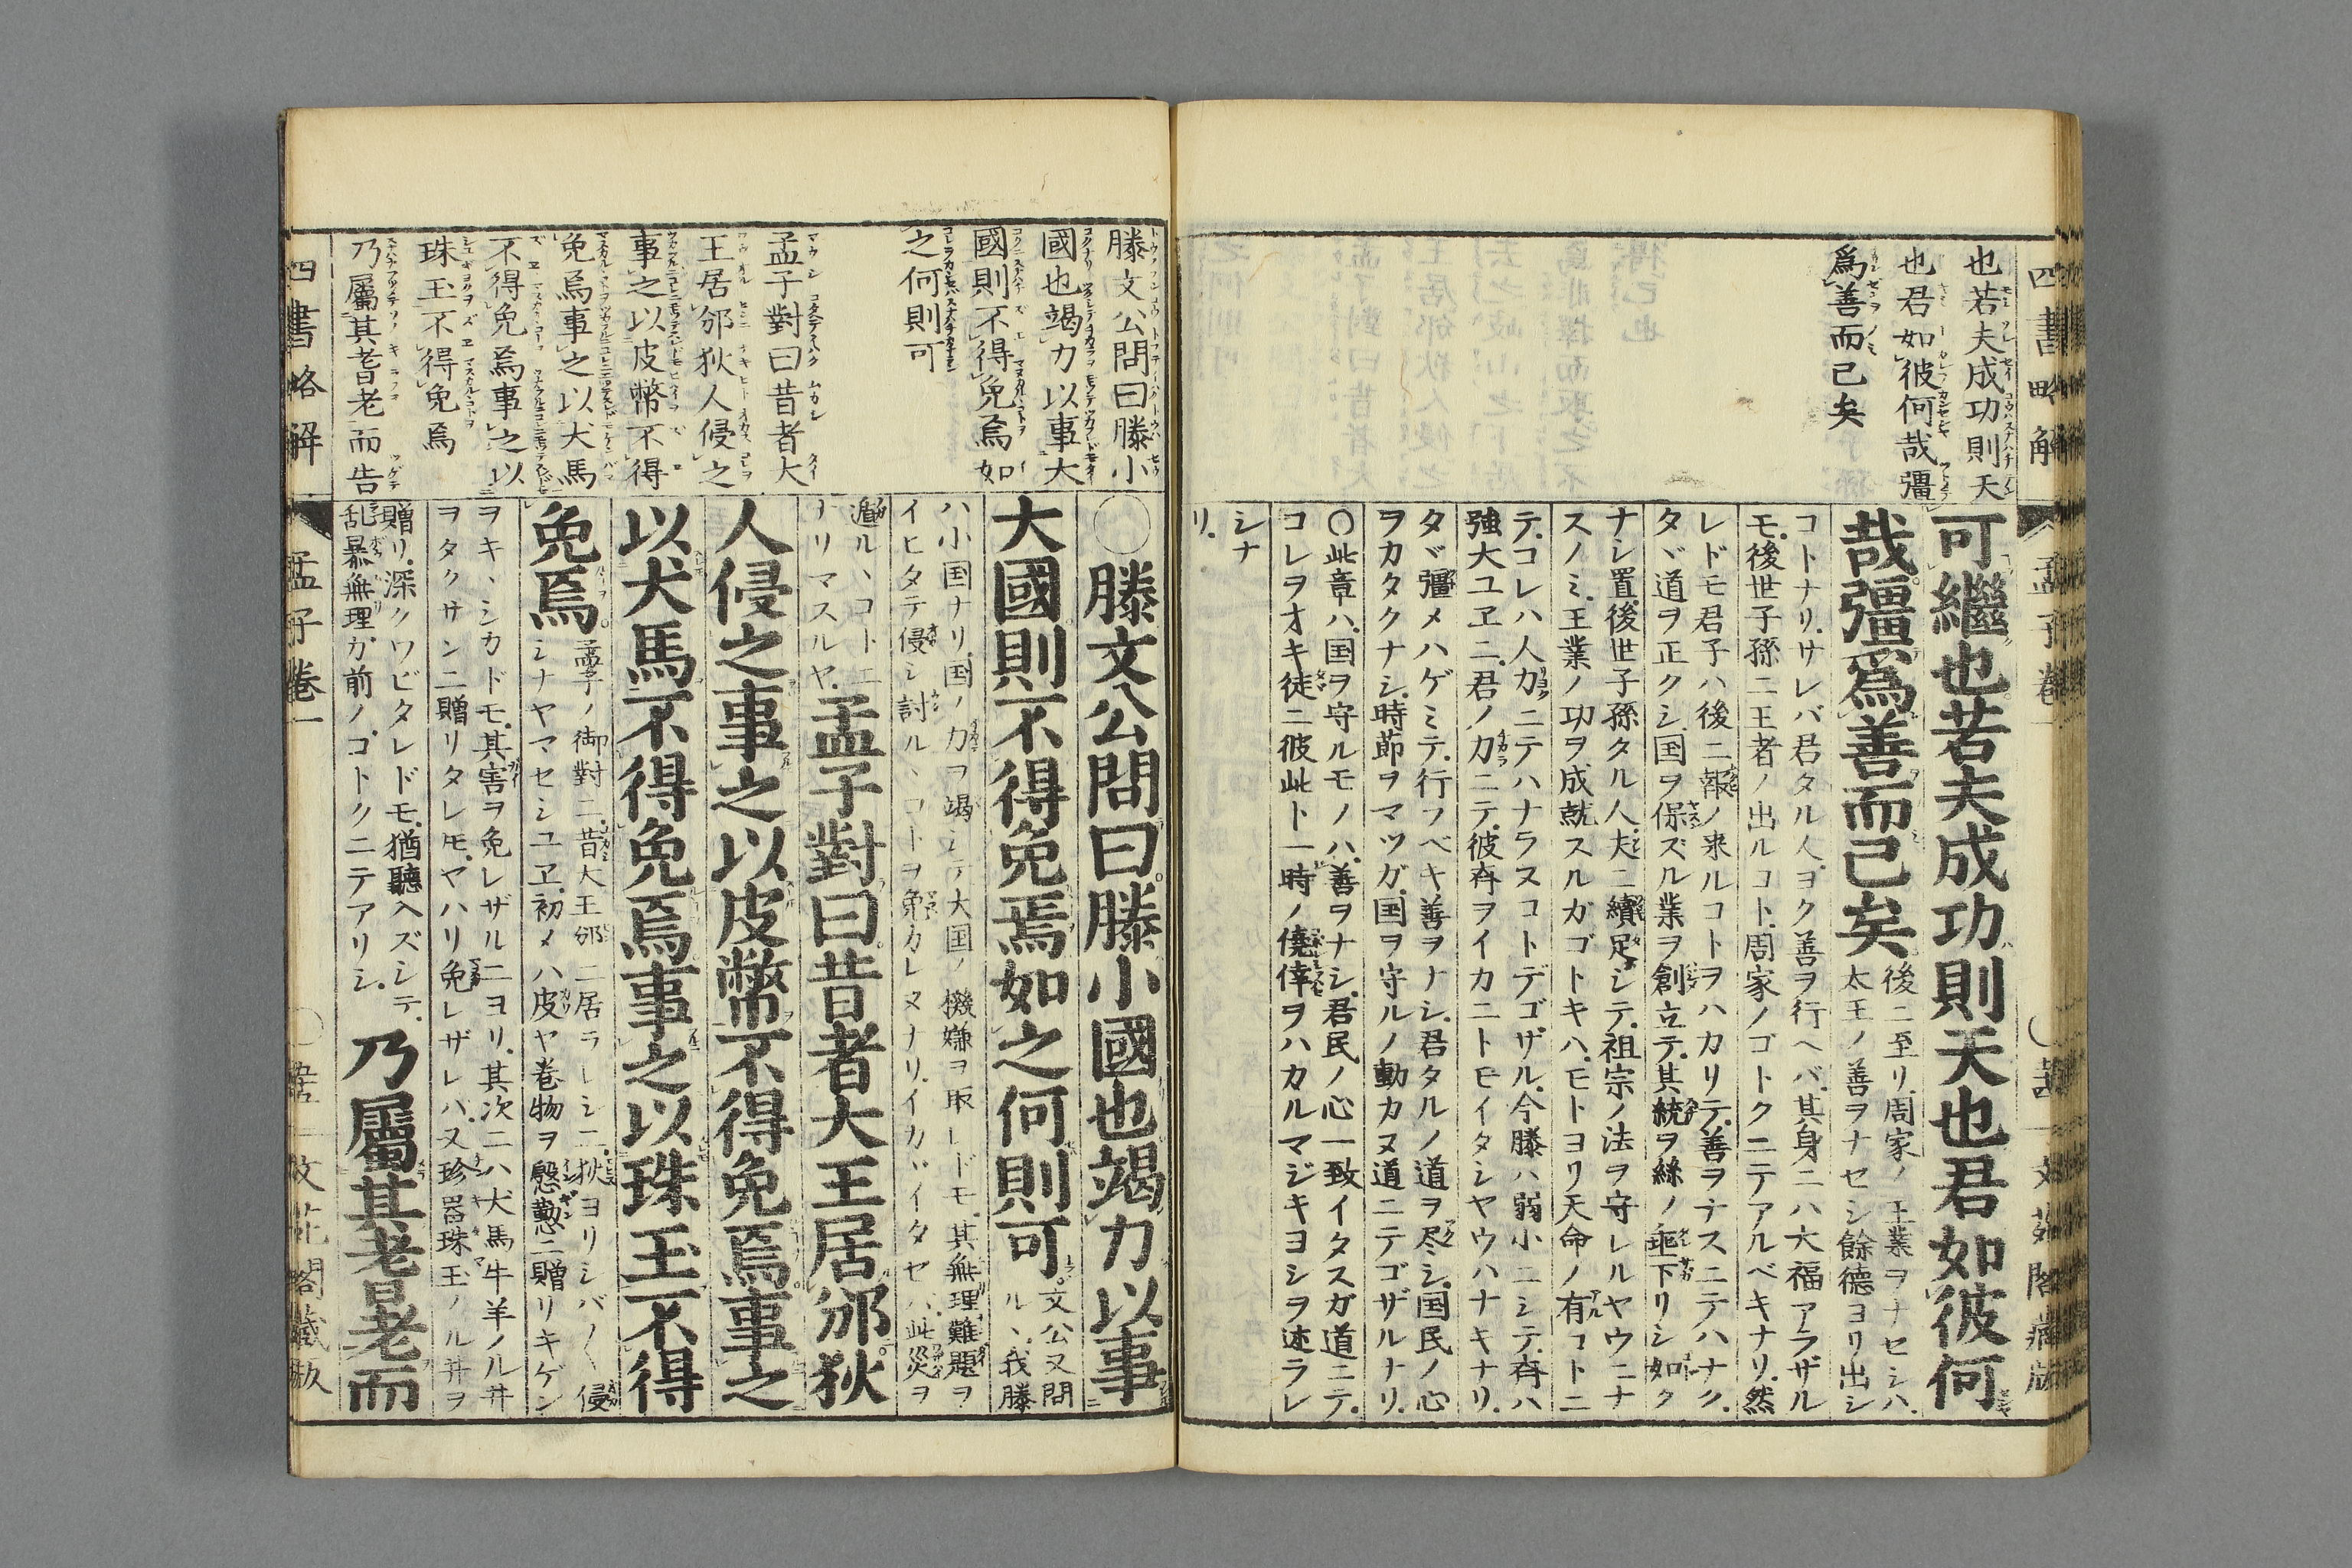 四書略解
孟子卷一
也若夫成功則天
也君如彼何哉彊
爲善而已矣
可繼也若夫成功則天也君如彼何
哉彊爲善而已矣
後ニ至リ周家ノ王業ヲナセシハ
太王ノ善ヲナセシ餘德ヨリ出シ
コトナリ.サレバ君タル人.ヨク善ヲ行ヘバ.其身ニハ大福アラザル
モ.後世子孫ニ王者ノ出ルコト.周家ノゴトクニテアルベキナリ.然
レドモ君子ハ後ニ報ノ来ルコトヲハカリテ.善ヲナスニテハナク.
タヾ道ヲ正クシ.国ヲ保ズル業ヲ創立テ.其統ヲ絲ノ垂下リシ如ク
ナシ置.後世子孫タル人.夫ニ續足シテ.祖宗ノ法ヲ守レルヤウニナ
スノミ.王業ノ功ヲ成就スルガゴトキハ.モトヨリ天命ノ有コトニ
テ.コレハ人力ニテハナラヌコトデゴザル.今滕ハ弱小ニシテ.斉ハ
強大ユヱニ.君ノ力ニテ.彼斉ヲイカニトモイタシヤウハナキナリ.
タヾ彊メハゲミテ.行フベキ善ヲナシ.君タルノ道ヲ尽シ.国民ノ心
ヲカタクナシ.時節ヲマツガ.国ヲ守ルノ動カヌ道ニテゴザルナリ.
○此章ハ.国ヲ守ルモノハ.善ヲナシ.君民ノ心一致イタスガ道ニテ.
コレヲオキ徒ニ彼此ト一時ノ僥倖ヲハカルマジキヨシヲ述ラレ
シナ
リ.
滕文公問曰滕小
國也竭力以事大
國則不得免焉如
之何則可
孟子對曰昔者大
王居邠狄人侵之
事之以皮幣不得
免焉事之以犬馬
不得免焉事之以
珠玉不得免焉
乃屬其耆老而告
○滕文公問曰滕小國也竭力以事
大國則不得免焉如之何則可
文公又問
ルヽ我滕
ハ小国ナリ.国ノ力ヲ竭シテ大国ノ機嫌ヲ取レドモ.其無理難題ヲ
イヒタテ侵シ討ルヽコトヲ免カレヌナリ.イカヾイタセバ.此災ヲ
遁ルヽコトニ
ナリマスルヤ.
孟子對曰昔者大王居邠狄
人侵之事之以皮幣不得免焉事之
以犬馬不得免焉事之以珠玉不得
免焉
孟子ノ御對ニ.昔大王邠ニ居ラレシニ.狄ヨリシバ〱侵
シナヤマセシユヱ.初メハ皮ヤ巻物ヲ慇懃ニ贈リキゲン
ヲキヽシカドモ.其害ヲ免レザルニヨリ.其次ニハ犬馬牛羊ノル井
ヲタクサンニ贈リタレモ.ヤハリ免レザレバ.又珍器珠玉ノル井ヲ
贈リ.深クワビタレドモ.猶聽入ズシテ.
乱暴無理ガ前ノゴトクニテアリシ.
乃屬其耆老而
四書略解
孟子卷一